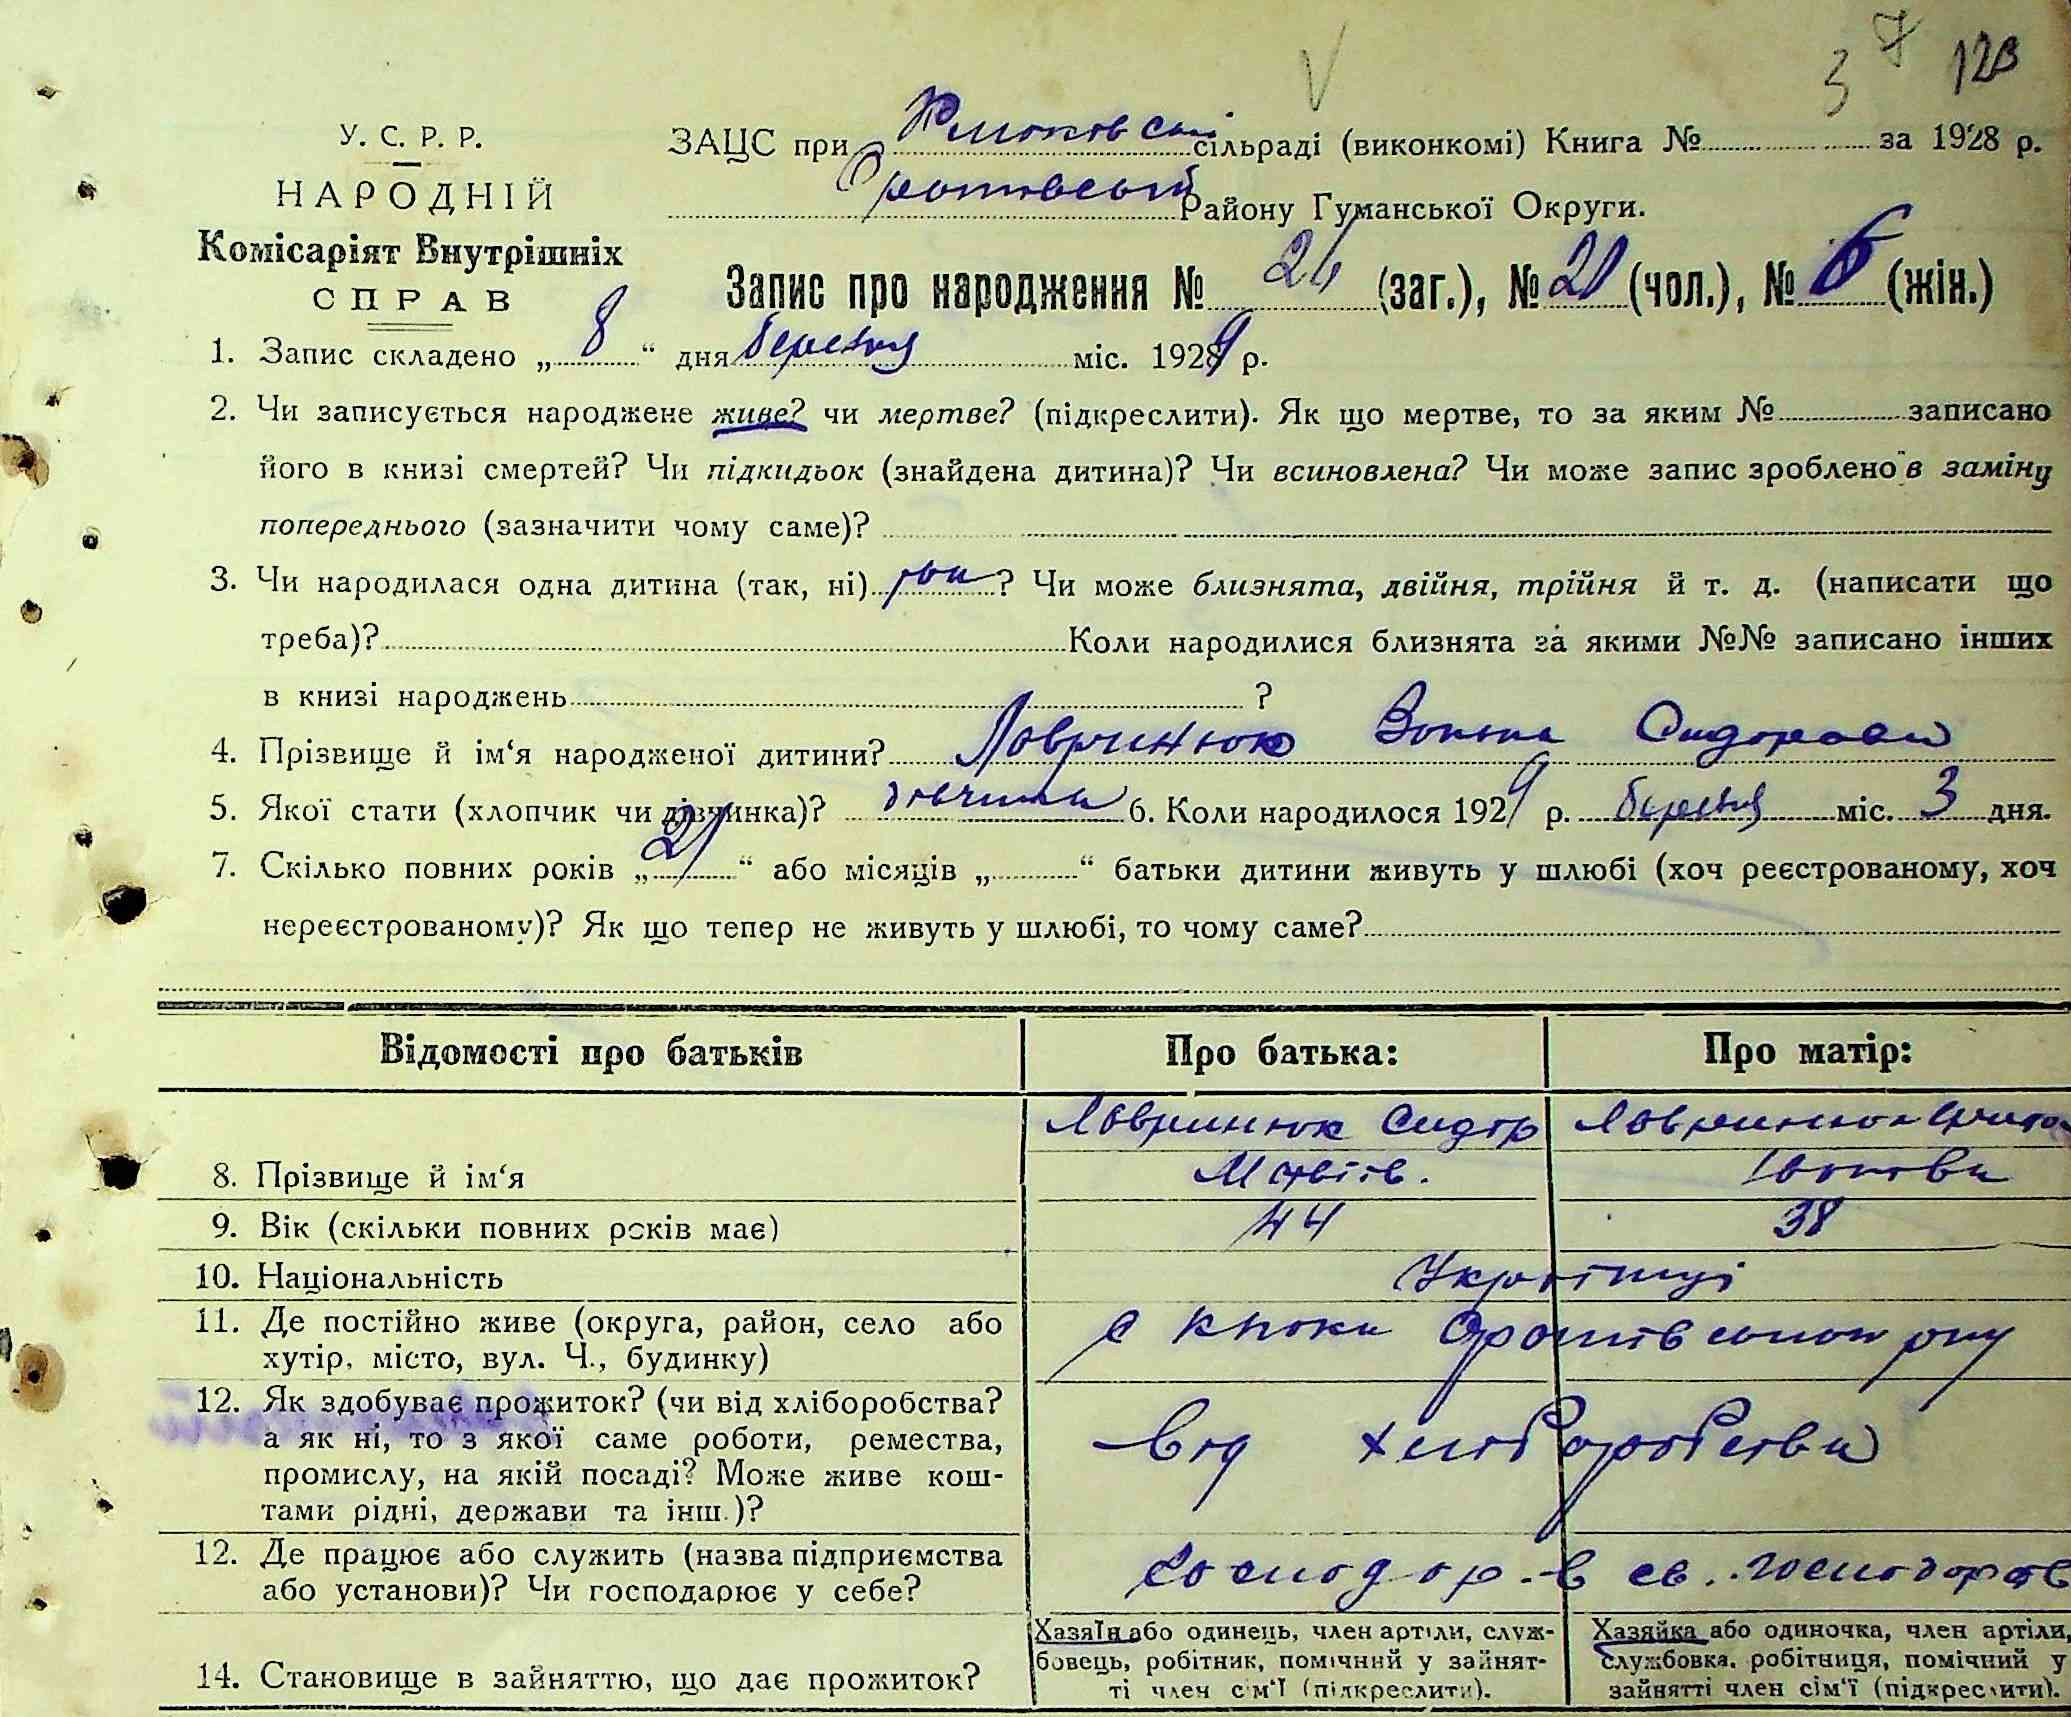 3 7 123
У. С. Р. Р.
НАРОДНІЙ
Комісаріят Внутрішніх
СПРАВ
ЗАЦС при сільраді (виконкомі) Книга № за 1928 р.
Оратовський Району Гуманської Округи.
Запис про народження № 26 (заг.), № 20 (чол.), № 6 (жін.)
1. Запис складено „ 8 “ дня березня міс. 1929 р.
2. Чи записується народжене живе? чи мертве? (підкреслити). Як що мертве, то за яким № записано
його в книзі смертей? Чи підкидьок (знайдена дитина)? Чи всиновлена? Чи може запис зроблено в заміну
попереднього (зазначити чому саме)?
3. Чи народилася одна дитина (так, ні) ? Чи може близнята, двійня, трійня й т. д. (написати що
треба)? Коли народилися близнята за якими №№ записано інших
в книзі народжень ?
4. Прізвище й ім‘я народженої дитини? Лавринюк Сидоровн
5. Якої стати (хлопчик чи дівчинка)? дівчинка 6. Коли народилося 1929 р. березня міс. 3 дня.
7. Скілько повних років „ 21 “ або місяців „ “ батьки дитини живуть у шлюбі (хоч реєстрованому, хоч
нереєстрованому)? Як що тепер не живуть у шлюбі, то чому саме?
Відомості про батьків Про батька: Про матір:
Лавринюк Сидор Лавринюк
8. Прізвище й ім‘я Матвіїв.
9. Вік (скільки повних років має) 44 38
10. Національність Українці
11. Де постійно живе (округа, район, село або
хутір, місто, вул. Ч., будинку)
с Кнюки Оратівського р-ну
12. Як здобуває прожиток? (чи від хліборобства?
а як ні, то з якої саме роботи, ремества,
промислу, на якій посаді? Може живе кош-
тами рідні, держави та інш.)?
від хліборобства
12. Де працює або служить (назва підприємства
або установи)? Чи господарює у себе?
господар. в св. господарств
14. Становище в зайняттю, що дає прожиток?
Хазяїн або одинець, член артіли, служ-
бовець, робітник, помічний у зайнят-
ті член сім‘ї (підкреслити).
Хазяйка або одиночка, член артіли,
службовка, робітниця, помічний у
зайнятті член сім‘ї (підкреслити).